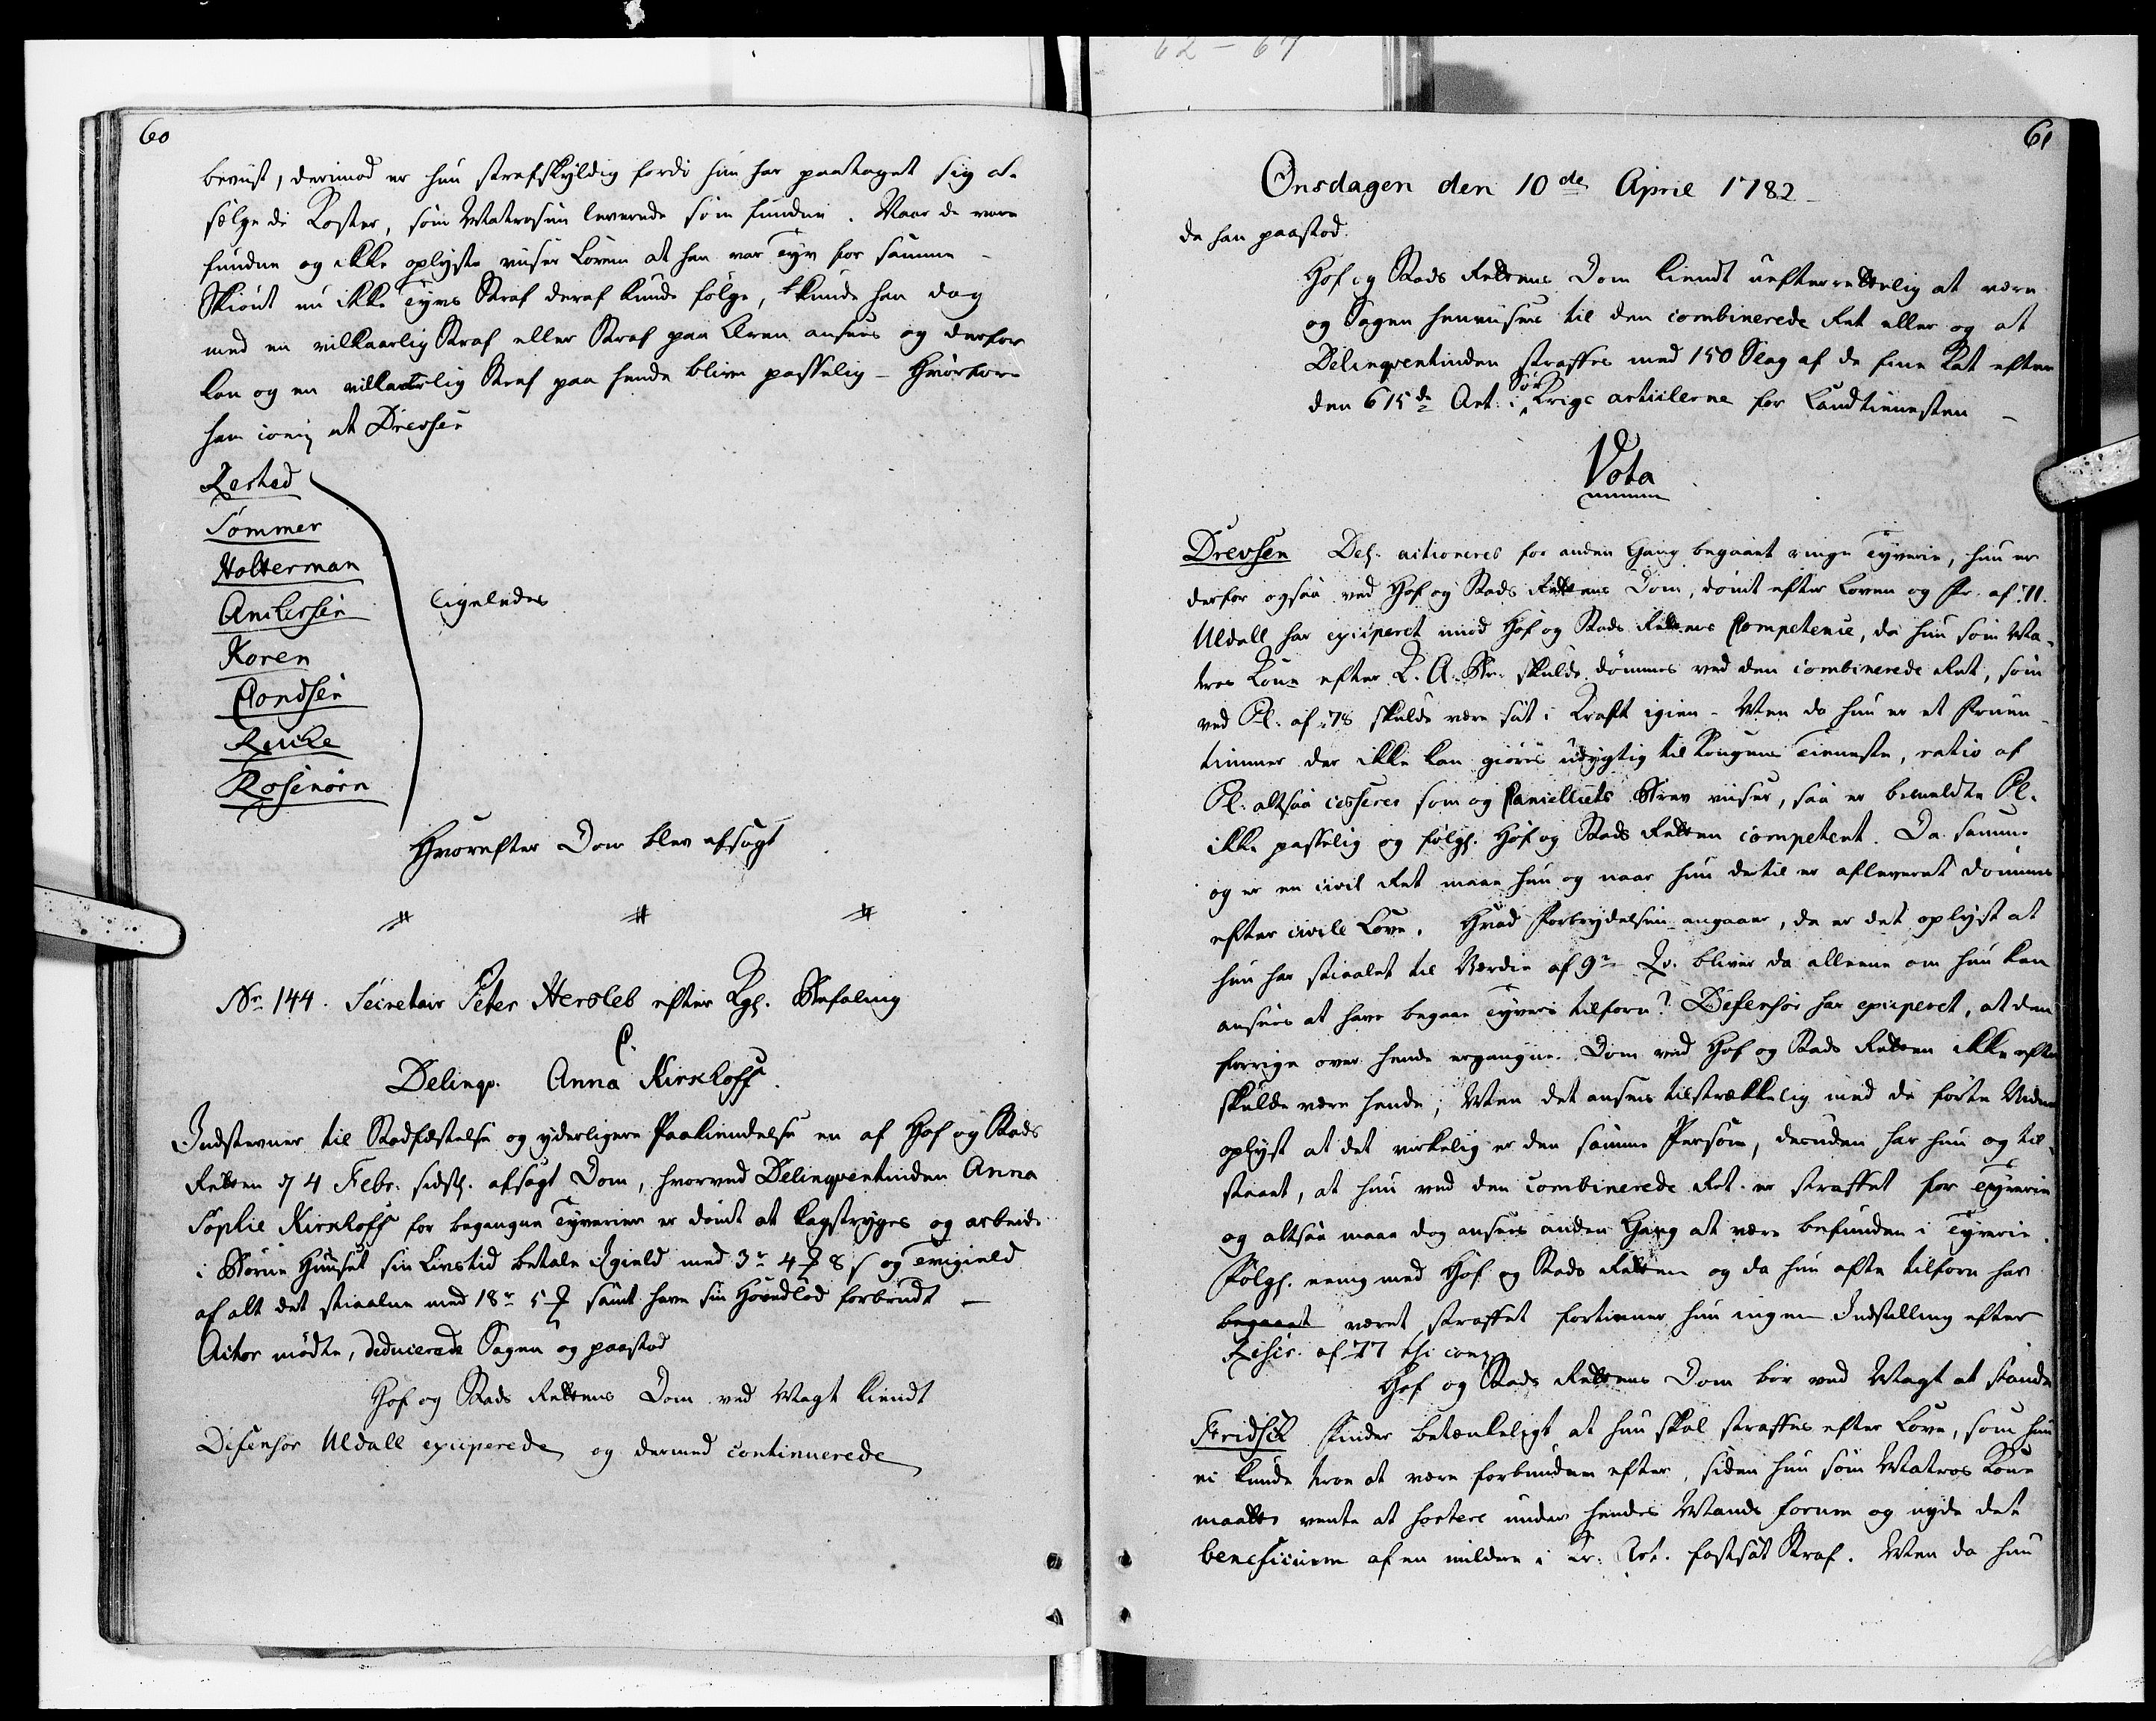 60
beviist, derimod er hun strafskyldig fordi hun har paataget sig at
sælge de Koster, som Matrosen leverede som fundne. Naar de vare
fundne og ikke oplyste viiser Loven at han var Tyv for samme
Skiønt nu ikke Tyvs Straf deraf kunde følge, kunde han dog
med en vilkaarlig Straf eller Straf paa Æren ansees og derfor
kan og en vilkaarlig Straf paa hende blive passelig - Hvorfore
han eenig at Drevsen
Lested
Sommer
Holterman
Anchersen
Koren
Aondsen
Reiche
Rosenørn
ligeledes
Hvorefter Dom blev afsagt
Nr 144. Secretair Peter Hersleb efter Kgl. Befaling
C.
Delinqv. Anna Kirkhoff.
Indstevner til Stadfæstelse og yderligere Paakiendelse en af Hof og Stads
Retten d 4 Febr. sidstl. afsagt Dom, hvorved Delinqventinden Anna
Sophie Kirkhoff for begangne Tyverier er dømt at kagstryges og arbeide
i Børne Huuset sin Livstid betale Igield med 3r 4 8 s og Tvigield
af alt det stiaalne med 18r 5 samt have sin Hovedlod forbrudt
Actor mødte, deducerede Sagen og paastod
Hof og Stads Rettens Dom ved Magt kiendt
Defensor Uldall exciperede og dermed continuerede
61
Onsdagen den 10de April 1782
da han paastod.
Hof og Stads Rettens Dom kiendt uefterrettelig at være
og Sagen henviises til den combinerede Ret eller og at
Delinqventinden straffes med 150 Slag af de fine Kat efter
den 615de Art. i Søe Krigs articlerne for Landtienesten
Vota
Drevsen Del. actioneres for anden Gang begaaet ringe Tyverie, hun er
derfor ogsaa ved Hof og Stads Rettens Dom, dømt efter Loven og Fr. af 71.
Uldall har exciperet imod Hof og Stads Rettens Competence, da hun som Ma-
tros Kone efter K. A. Br. skulde dømmes ved den combinerede Ret, som
ved Pl. af 78 skulde være sat i Kraft igien - Men da hun er et Fruen-
timmer der ikke kan giøres udygtig til Kongens Tieneste, ratio af
Pl. altsaa cesserer som og Cancelliets Brev viiser, saa er bemeldte Pl.
ikke passelig og følgl. Hof og Stads Retten competent. Da samme
og er en civil Ret maae hun og naar hun dertil er afleveret dømmes
efter civile Love. Hvad Forbrydelsen angaaer, da er det oplyst at
hun har stiaalet til Værdie af 9r Qv. bliver da alleene om hun kan
ansees at have begaaet Tyverie tilforn? Defensor har exciperet, at den
forrige over hende ergangne Dom ved Hof og Stads Retten ikke ofte
skulde være hende; Men det ansees tilstrækkelig med de førte Vidner
oplyst at det virkelig er den samme Persohn, desuden har hun og til-
staaet, at hun ved den combinerede Ret er straffet for Tyverie
og altsaa maae dog ansees anden Gang at være befunden i Tyverie.
Følgl. eenig med Hof og Stads Retten og da hun ofte tilforn har
begaaet været straffet fortiener hun ingen Indstilling efter
Rescr. af 77 thi eenig
Hof og Stads Rettens Dom bør ved Magt at stande
Fridsch finder betænkeligt at hun skal straffes efter Love, som hun
ei kunde troe at være forbunden efter, siden hun som Matros Kone
maatte vente at sortere under hendes Mands forum og nyde det
beneficium af en mildere i Kr. Art. fastsat Straf. Men da hun